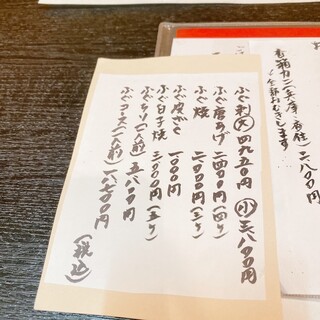 香箱カニ(兵庫・香住)二、八〇〇円
全部おむきします
ふぐ刺(大)四九五〇円 (小)三八〇〇円
ふぐ唐あげ 二四〇〇円(四ケ)
ふぐ焼 二〇〇〇円(三ケ)
ふぐ皮 一〇〇〇円
ふぐ白子焼 三〇〇〇円(三ケ)
ふぐチリ(一人前)五八〇〇円
ふぐコース(一人前)一八七〇〇円
(税込)